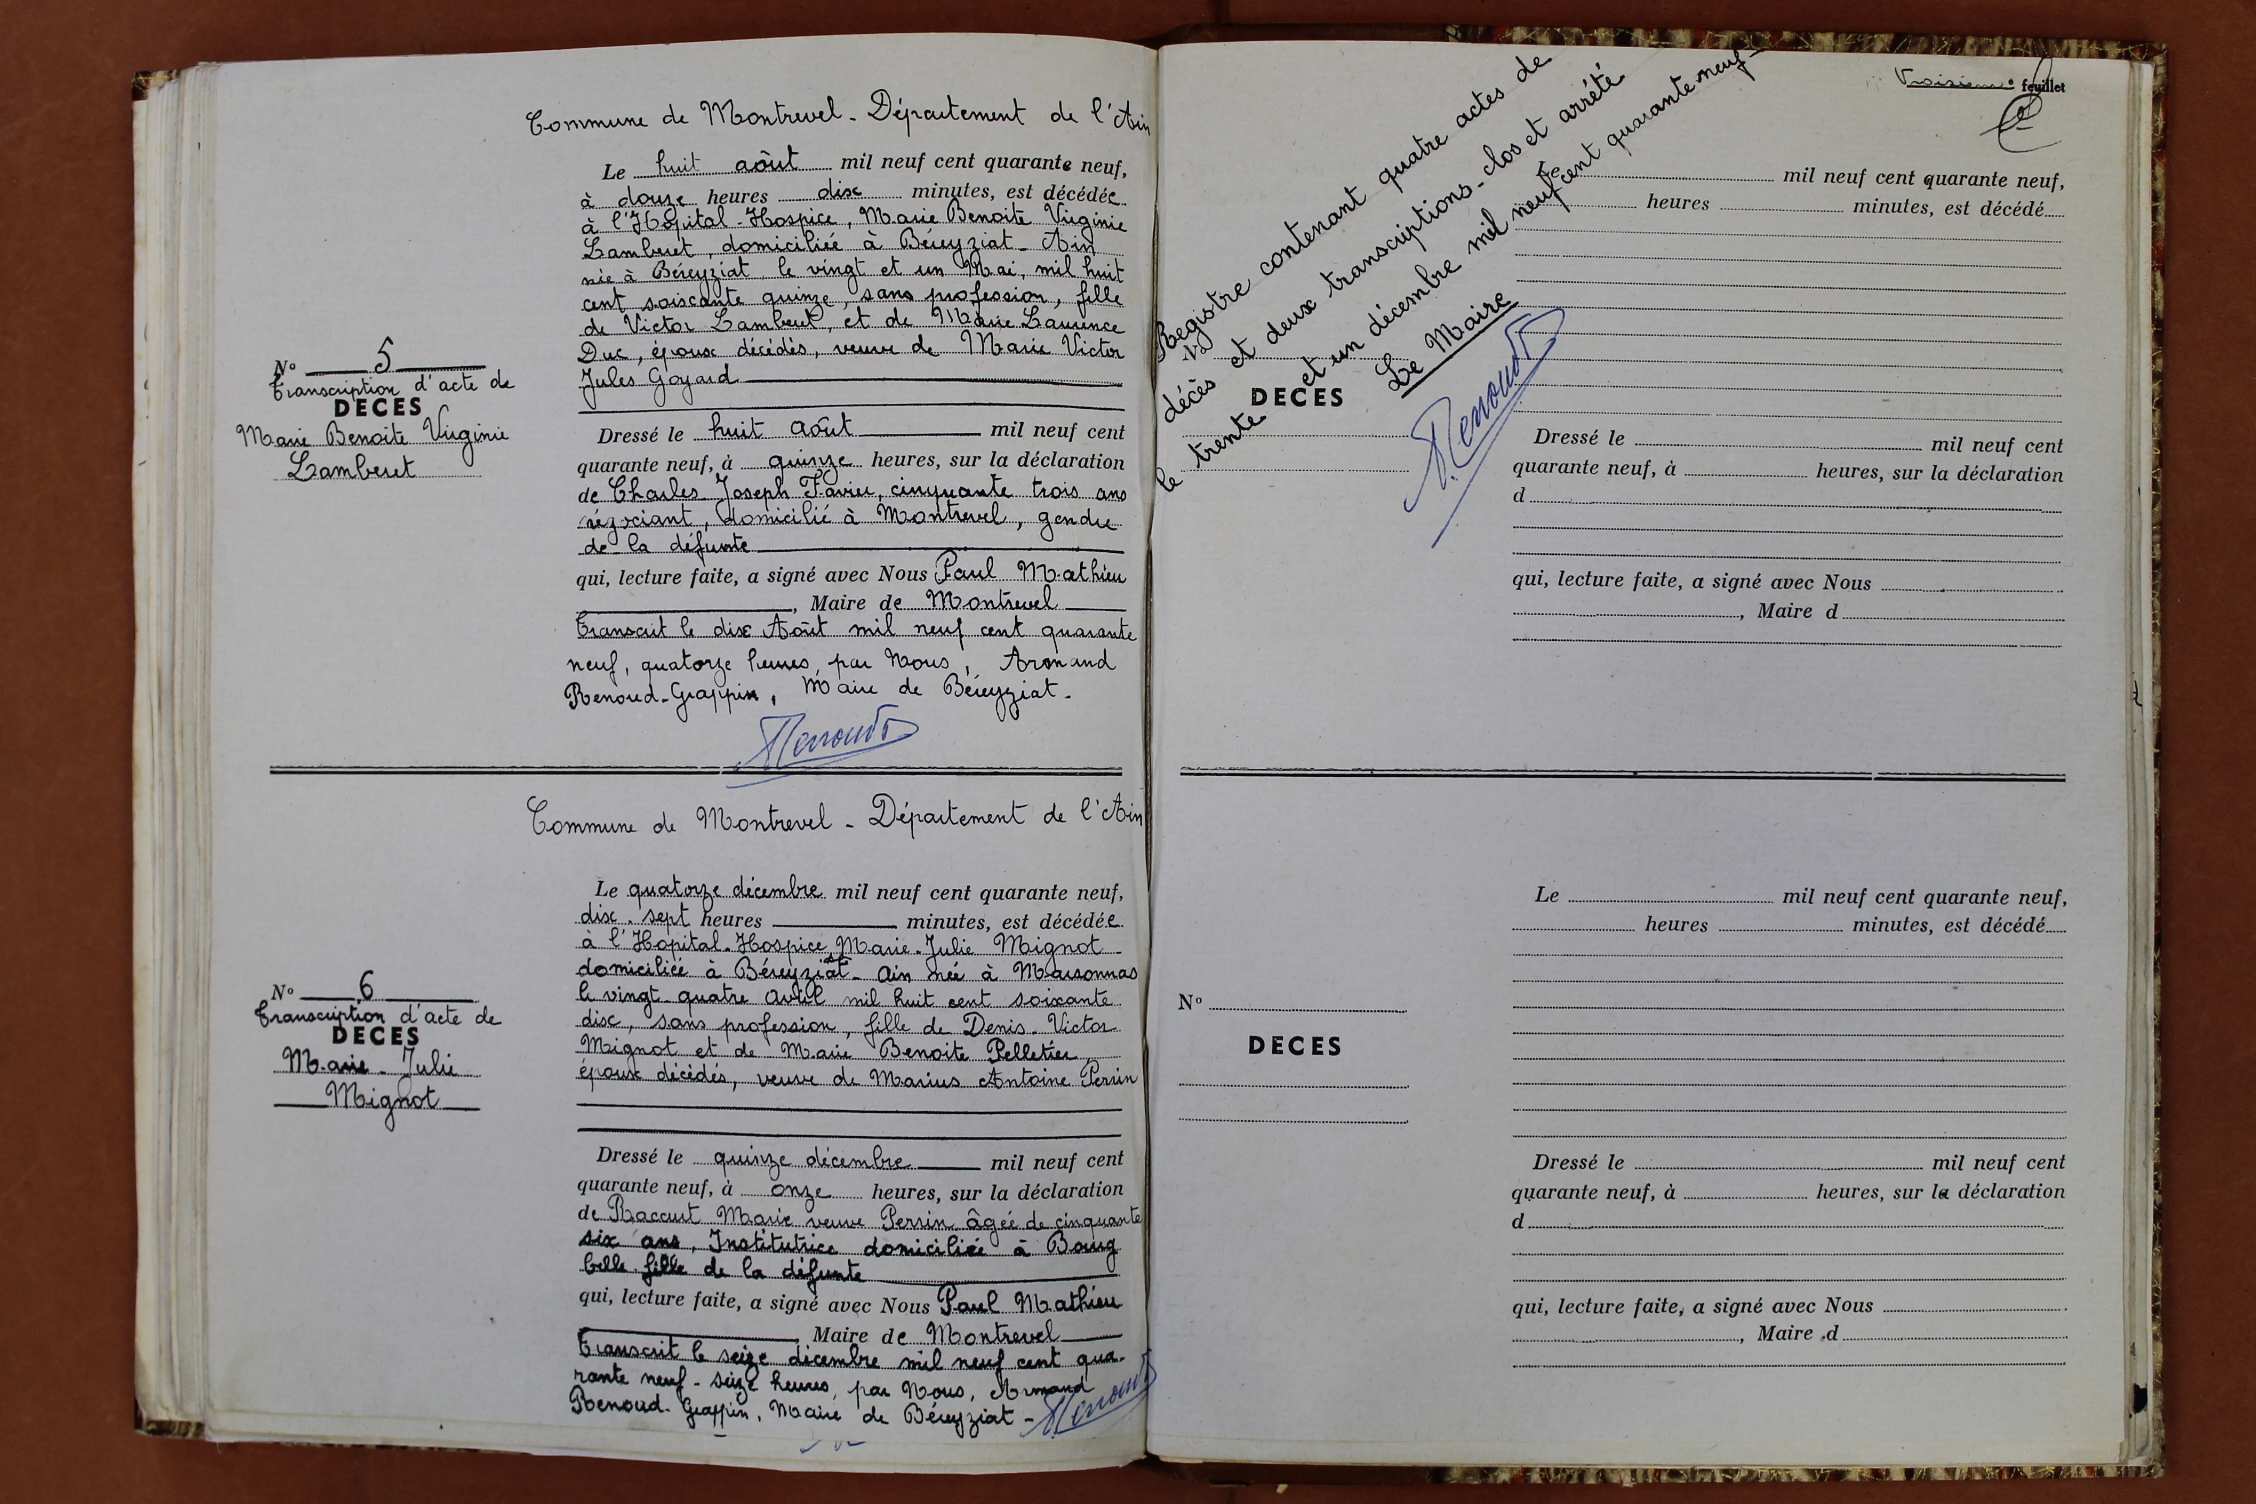 Commune de Montrevel - Département de l'Ain
Le huit août mil neuf cent quarante neuf,
à douze heures dix minutes, est décédée
à l'Hôpital-Hospice, Marie Benoite Virginie
Lamberet, domiciliée à Béreyziat - Ain
née à Béreyziat le vingt et un Mai, mil huit
cent soixante quinze, sans profession, fille
de Victor Lamberet, et de Marie Laurence
Duc, époux décédés, veuve de Marie Victor
Jules Goyard
N° 5
Transcription d'acte de
DECES
Marie Benoite Virginie
Lamberet
Dressé le huit Août mil neuf cent
quarante neuf, à quinze heures, sur la déclaration
de Charles Joseph Favier, cinquante trois ans
négociant, domicilié à Montrevel, gendre
de la défunte
qui, lecture faite, a signé avec Nous Paul Mathieu
, Maire de Montrevel
Transcrit le dix Août mil neuf cent quarante
neuf, quatorze heures, par Nous, Armand
Renoud-Grappin, Maire de Béreyziat -
Commune de Montrevel - Département de l'Ain
Le quatorze décembre mil neuf cent quarante neuf,
dix-sept heures minutes, est décédée
à l'Hopital-Hospice Marie-Julie Mignot
domiciliée à Béreyziat - Ain née à Marsonnas
le vingt-quatre avril mil huit cent soixante
dix, sans profession, fille de Denis-Victor
Mignot et de Marie Benoite Pelletier,
époux décédés, veuve de Marius Antoine Perrin
N° 6
Transcription d'acte de
DECES
Marie-Julie
Mignot
Dressé le quinze décembre mil neuf cent
quarante neuf, à onze heures, sur la déclaration
de Raccurt Marie veuve Perrin âgée de cinquante
six ans, Institutrice domiciliée à Bourg
belle fille de la défunte
qui, lecture faite, a signé avec Nous Paul Mathieu
Maire de Montrevel
Transcrit le seize décembre mil neuf cent qua-
rante neuf - seize heures, par Nous, Armand
Renoud-Grappin, Maire de Béreyziat -
Troisième feuillet
Registre contenant quatre actes de
décès et deux transcriptions - clos et arrêté
le trente et un décembre mil neuf cent quarante neuf -
Le Maire
Le mil neuf cent quarante neuf,
heures minutes, est décédé
N°
DECES
Dressé le mil neuf cent
quarante neuf, à heures, sur la déclaration
d
qui, lecture faite, a signé avec Nous
, Maire d
Le mil neuf cent quarante neuf,
heures minutes, est décédé
N°
DECES
Dressé le mil neuf cent
quarante neuf, à heures, sur la déclaration
d
qui, lecture faite, a signé avec Nous
, Maire d